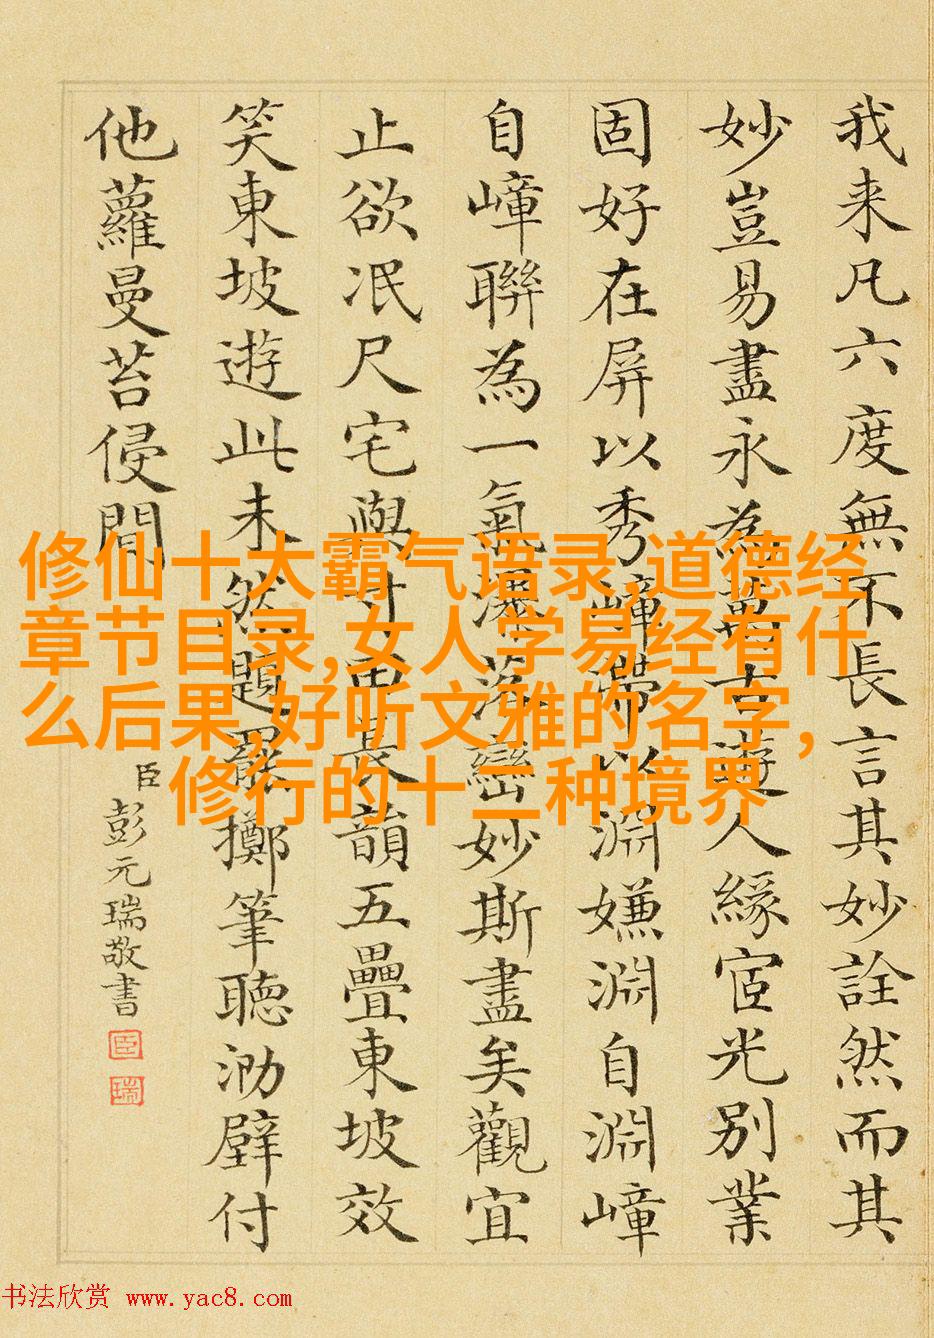 我来凡六度無不長言其妙詮然而其
妙豈易盡永為萬古遊人緣宦光別業
固好在屏以秀嶂帶以淵嫌淵自淵嶂
自嶂聯為一氣瀑落巒妙斯盡矣觀宜
止欲冺尺宅與寸田長韻五疊東坡效
笑東坡遊此未然題罷擲筆聽泐壁付
他蘿曼苔侵間
臣彭元瑞敬書
臣
瑞
修仙十大霸气语录,道德经
章节目录,女人学易经有什
么后果,好听文雅的名字，
修行的十二种境界
书法欣赏 www.yac8.com